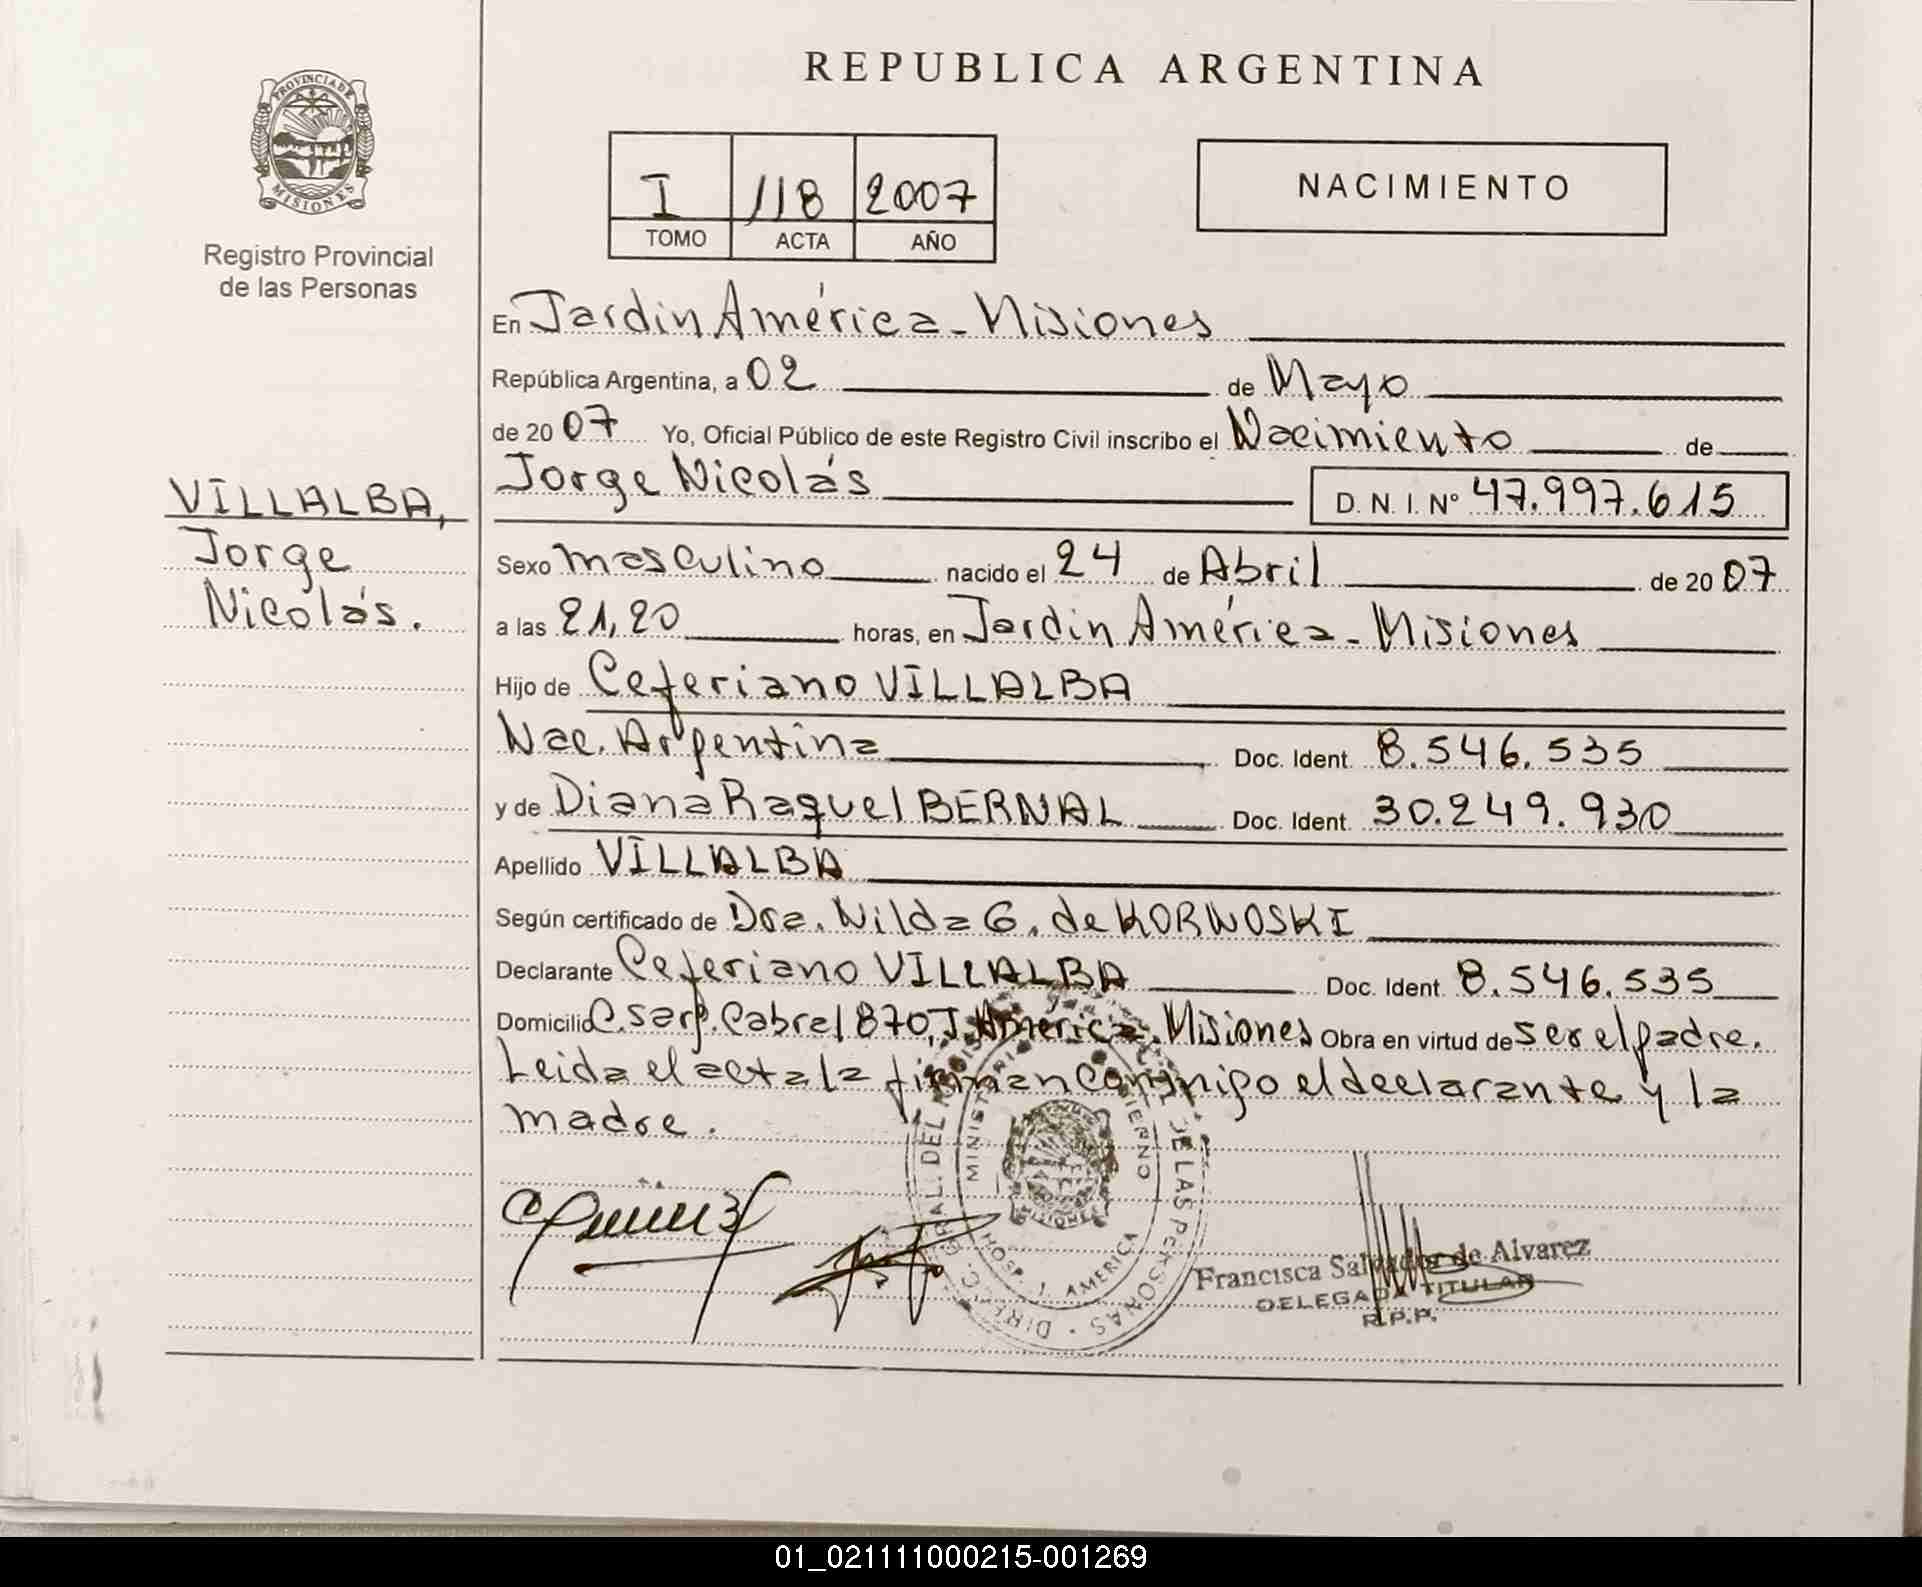 REPUBLICA ARGENTINA
PROVINCIA DE
MISIONES
Registro Provincial
de las Personas
I 118 2007
TOMO ACTA AÑO
NACIMIENTO
En Jardin América - Misiones
República Argentina, a 02 de Mayo
de 2007 Yo, Oficial Público de este Registro Civil inscribo el Nacimiento de
Jorge Nicolás D. N. I. Nº 47.997.615
VILLALBA,
Jorge
Nicolás.
Sexo masculino nacido el 24 de Abril de 2007
a las 21,20 horas, en Jardin América - Misiones
Hijo de Ceferiano VILLALBA
Nac. Argentina Doc. Ident. 8.546.535
y de Diana Raquel BERNAL Doc. Ident. 30.249.930
Apellido VILLALBA
Según certificado de Dra. Nilda G. de KORNOSKI
Declarante Ceferiano VILLALBA Doc. Ident. 8.546.535
Domicilio C. Sarg. Cabral 870, J. América. Misiones Obra en virtud de ser el padre.
Leida el acta la firman conmigo el declarante y la
madre.
MINISTERIO GOBIERNO
DEL DE LAS PERSONAS
HOSP. J. AMERICA
MISIONES
Francisca Salvador de Alvarez
DELEGADA TITULAR
R.P.P.
01_021111000215-001269